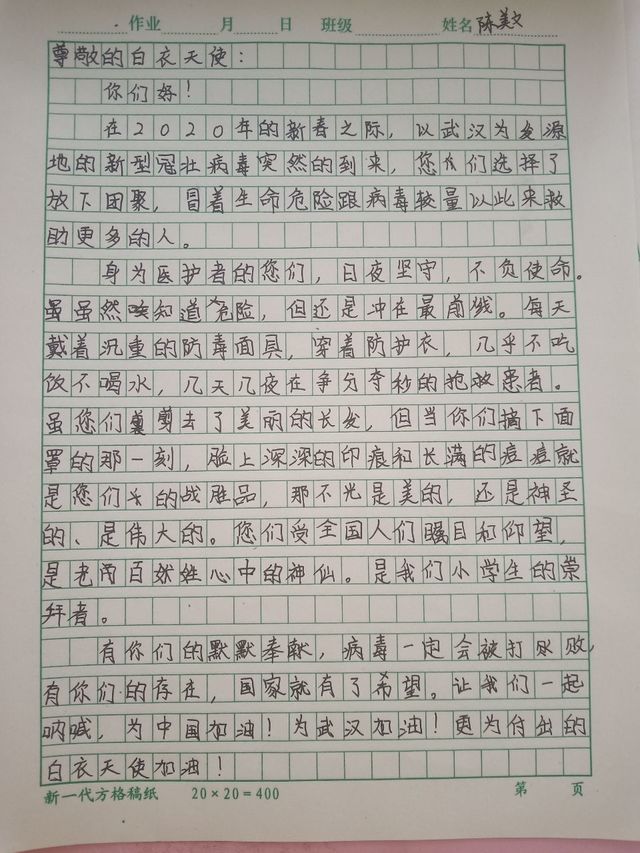 作业 月 日 班级 姓名 陈美文
尊敬的白衣天使：
你们好！
在2020年的新春之际，以武汉为发源
地的新型冠壮病毒突然的到来，您们选择了
放下团聚，冒着生命危险跟病毒较量以此来救
助更多的人。
身为医护者的您们，日夜坚守，不负使命。
虽虽然知道危险，但还是冲在最前线。每天
戴着沉重的防毒面具，穿着防护衣，几乎不吃
饭不喝水，几天几夜在争分夺秒的抢救患者。
虽您们剪去了美丽的长发，但当你们摘下面
罩的那一刻，脸上深深的印痕和长满的痘痘就
是您们的战胜品，那不光是美的，还是神圣
的、是伟大的。您们受全国人们瞩目和仰望，
是老百姓心中的神仙。是我们小学生的崇
拜者。
有你们的默默奉献，病毒一定会被打败，
有你们的存在，国家就有了希望。让我们一起
呐喊，为中国加油！为武汉加油！更为付出的
白衣天使加油！
新一代方格稿纸 20×20=400 第 页